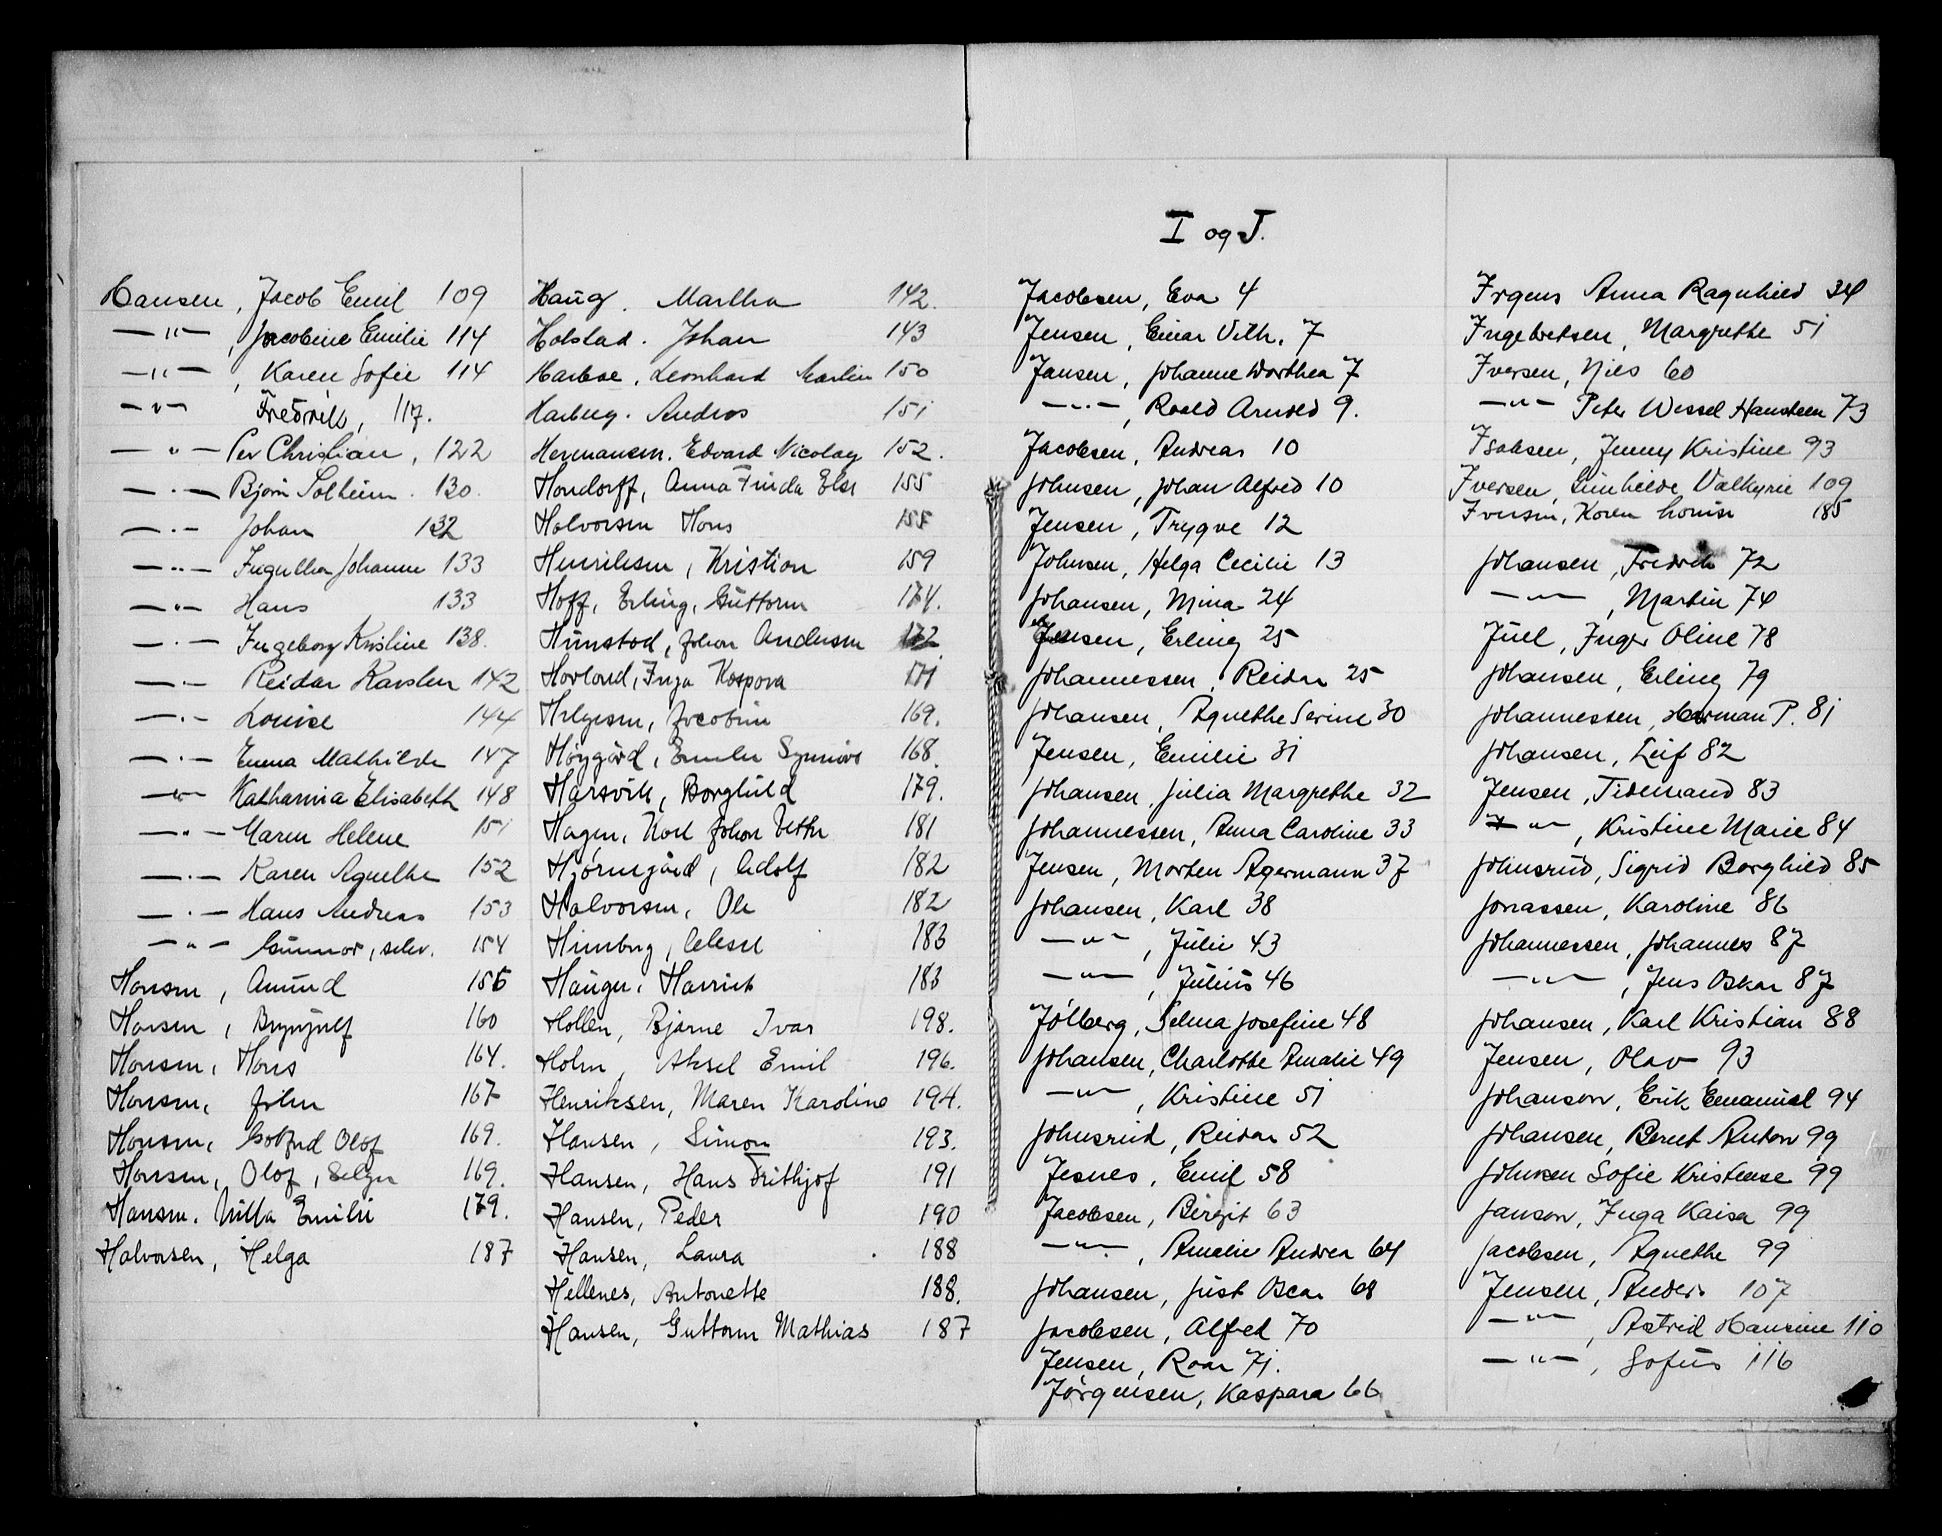 Hansen, Jacob Emil 109
—"—, Jacobine Emilie 114
—"—, Karen Sofie 114
—"— Fredrik, 117.
—"— Per Christian, 122
—"— Bjørn Solheim. 130.
—"— Johan 132
—"— Johanne 133
—"— Hans 133
—"— Ingeborg Kristine 138.
—"— Reidar Karsten 142
—"— Louise 144
—"— Emma Mathilde 147
—"— Katharina Elisabeth 148
—"— Maren Helene 151
—"— Karen Agnethe 152
—"— Hans Andreas 153
—"— Gunnar, selv. 154
Hansen, Amund 156
Hansen, Brynjulf 160
Hansen, Hans 164.
Hansen, John 167
Hansen, Gotfred Olaf 169.
Hansen, Olaf, Helga 169.
Hansen, Milla Emilie 179.
Halvorsen, Helga 187
Haug. Martha 142.
Holstad. Johan 143
Harboe, Leonhard Martin 150
Harberg. Andras 151
Hermansen. Edvard Nicolay 152.
Hondorff, Anna Frida Else 155
Halvorsen Hans 155
Henriksen, Kristian 159
Hoff, Erling, Guttorm 174.
Hunstad, Johan Andersen 172
Hovland, Inga Kaspara 171
Helgesen, Jacobine 169.
Høygård, Emilie Synnøve 168.
Harsvik, Borghild 179.
Hagen, Karl Johan Vettre 181
Hjørngård, Adolf 182
Halvorsen, Ole 182
183
Hauger, Harriet 183
Hollen, Bjarne Ivar 198.
Holm, Aksel Emil 196.
Henriksen, Maren Karoline 194.
Hansen, Simon 193.
Hansen, Hans Frithjof 191
Hansen, Peder 190
Hansen, Laura 188
Hellenes, Antonette 188.
Hansen, Guttorm Mathias 187
I og J.
Jacobsen, Eva 4
Jensen, Einar Vilh. 7
Jansen, Johanne Dorthea 7
—"—, Roald Arnold 9.
Jacobsen, Andreas 10
Johnsen, Johan Alfred 10
Jensen, Trygve 12
Johnsen, Helga Cecilie 13
Johansen, Mina 24
Jensen, Erling 25
Johannessen, Reidar 25
Johansen, Agnethe Serine 30
Jensen, Emilie 31
Johansen, Julia Margrethe 32
Johannessen, Anna Caroline 33
Jensen, Morten Agermann 37
Johansen, Karl 38
—"—, Julie 43
—"—, Julius 46
Jølberg, Selma Josefine 48
Johansen, Charlotte Amalie 49
—"—, Kristine 51
Johnsrud, Reidar 52
Jesnes, Emil 58
Jacobsen, Birgit 63
—"—, Amalie Andrea 64
Johansen, Just Oscar 68
Jacobsen, Alfred 70
Jensen, Roar 71.
Jørgensen, Kaspara 66
Irgens Anna Ragnhild 34
Ingebretsen, Margrethe 51
Iversen, Nils 60
—"— Peter Wessel Hansteen 73
Isaksen, Jenny Kristine 93
Iversen, Gunhilde Valkyrie 109
Iversen, Karen Louise 185
Johansen, Fredrik 72
—"—, Martin 74
Juel, Inger Oline 78
Johansen, Erling 79
Johannessen, Herman P. 81
Johansen, Leif 82
Jensen, Tidemand 83
—"—, Kristine Marie 84
Johnsrud, Sigrid Borghild 85
Jonassen, Karoline 86
Johannessen, Johannes 87
—"—, Jens Oskar 87
Johansen, Karl Kristian 88
Jensen, Olav 93
Johanson, Erik Emanuel 94
Johansen, Bernt Anton 99
Johnsen Sofie Kristense 99
Janson, Inga Kaisa 99
Jacobsen, Agnethe 99
Jensen, Anders 107
—"—, Astrid Hansine 110
—"—, Sofus 116